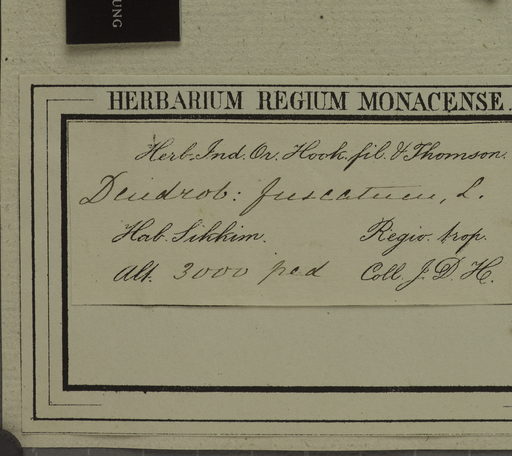 UNG
HERBARIUM REGIUM MONACENSE.
Herb. Ind. Or. Hook. fil. & Thomson.
Dendrob: fuscatum, L.
Hab. Sikkim. Regio. trop.
Alt. 3000 ped Coll. J. D. H.